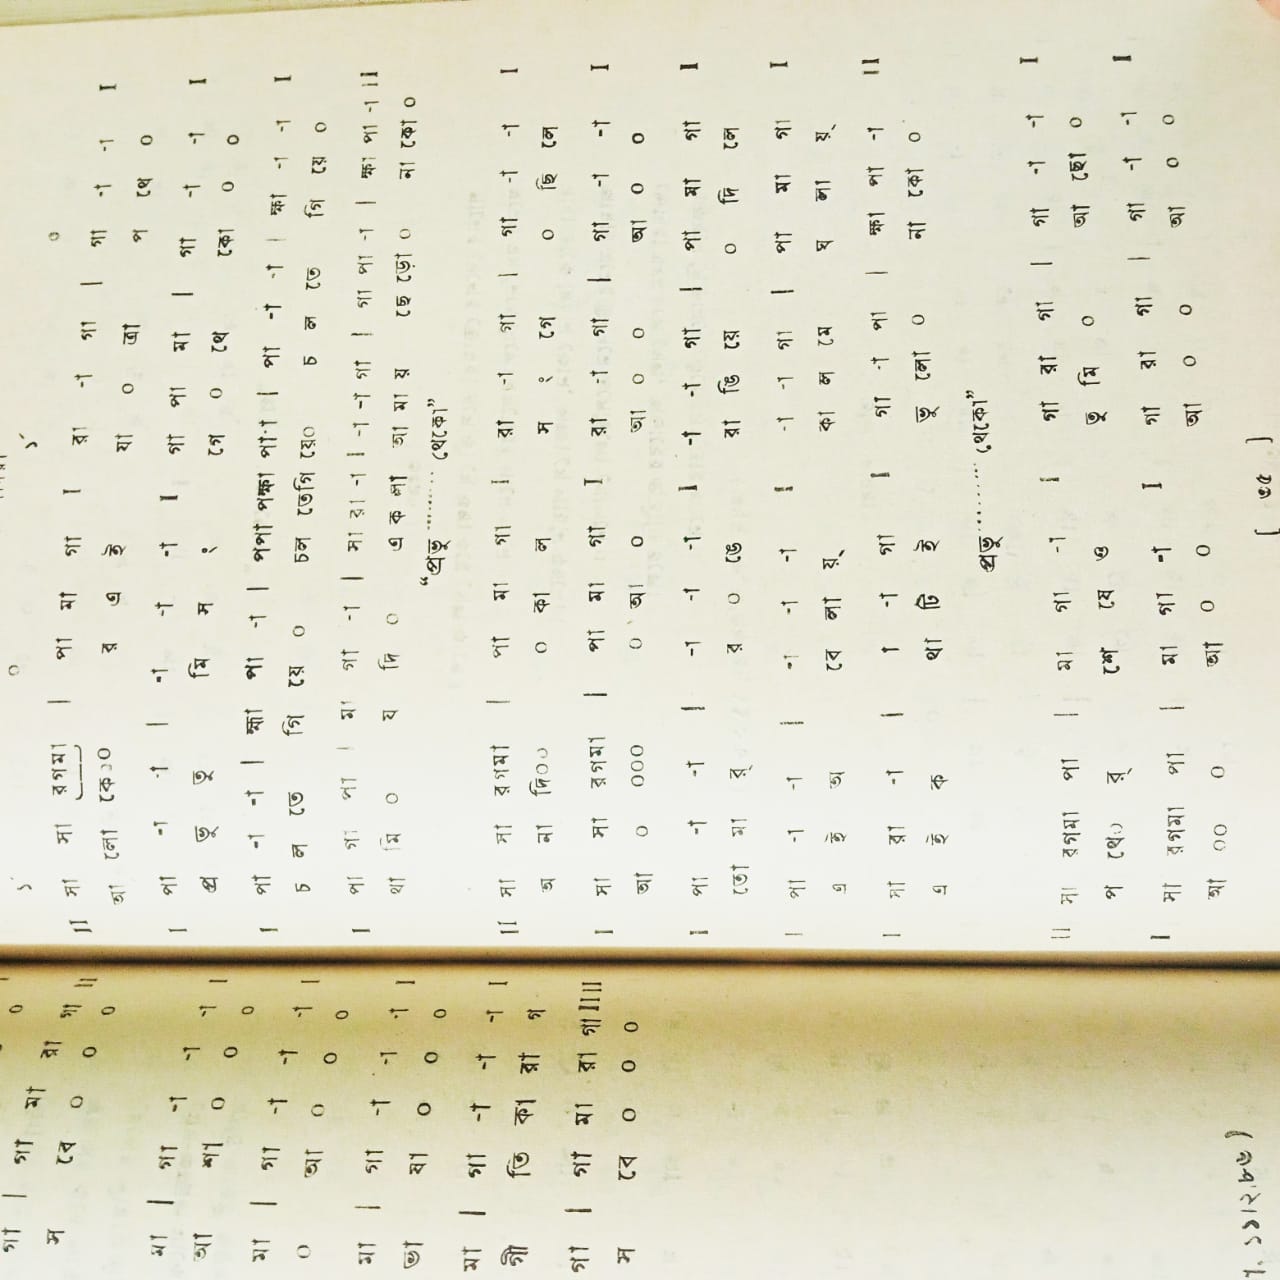 II সা সা রগমা | পা মা গা I রা -া গা | গা -া -া I
আ লো কে০০ র এ ই যা ০ ত্রা প থে ০
I পা -া -া | -া -া -া I গা পা মা | গা -া -া I
প্র ভু ভু মি স ং গে ০ থে কো ০ ০
I পা -া -া | হ্মা পা -া | পপা পহ্মা পা-া | পা -া -া | হ্মা -া -া I
চ ল তে গি য়ে ০ চল তেগি য়ে০ চ ল তে গি য়ে ০
I পা গা পা | মা গা -া | সা রা -া | -া -া গা | গা পা -া | হ্মা পা -া II
থা মি ০ য দি ০ এ ক লা আ মা য় ছে ড়ো ০ না কো ০
“প্রভু ......... থেকো”
II সা সা রগমা | পা মা গা I রা -া গা | গা -া -া I
অ না দি০০ ০ কা ল স ং গে ০ ছি লে
I সা সা রগমা | পা মা গা I রা -া গা | গা -া -া I
আ ০ ০০০ ০ আ ০ আ ০ ০ আ ০ ০
I পা -া -া | -া -া -া I -া -া গা | পা মা গা I
তো মা র্ র ০ ঙে রা ঙি য়ে ০ দি লে
I পা -া -া | -া -া -া I -া -া গা | পা মা গা I
এ ই অ বে লা য়্ কা ল মে ঘ লা য়্
I সা রা -া | া -া গা I গা -া পা | হ্মা পা -া II
এ ই ক থা টি ই ভু লো ০ না কো ০
প্রভু ......... থেকো”
II সা রগমা পা | মা গা -া I গা রা গা | গা -া -া I
প থে০ র্ শে ষে ও তু মি ০ আ ছো ০
I সা রগমা পা | মা গা -া I গা রা গা | গা -া -া I
আ ০০ ০ আ ০ ০ আ ০ ০ আ ০ ০
[ ৩৫ ]
গা | গা মা রা গা II
স বে ০ ০ ০
মা | গা -া -া -া I
আ শা ০ ০ ০
মা | গা -া -া -া I
০ আ ০ ০ ০
মা | গা -া -া -া I
ভা ষা ০ ০ ০
মা | গা -া -া -া I
গী তি কা রা গ
গা | গা মা রা গা II II
স বে ০ ০ ০
১১।২।৮৬ )